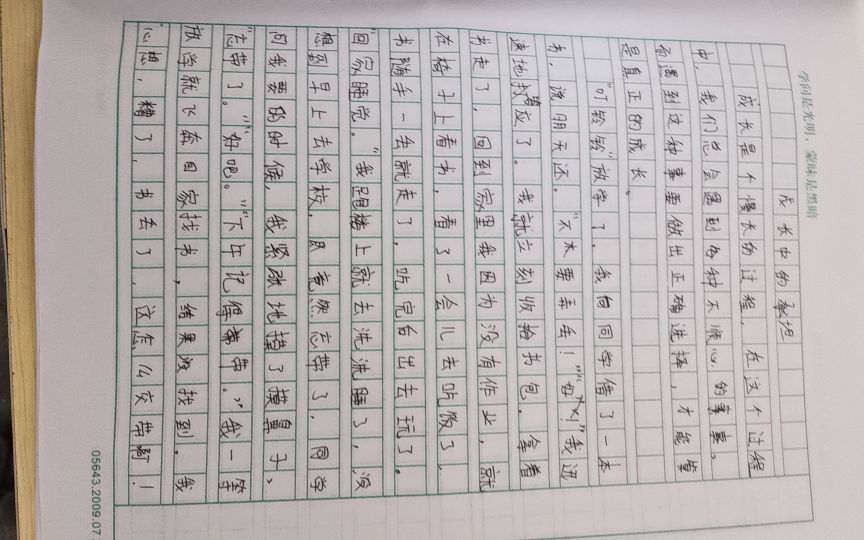 学问是光明，蒙昧是黑暗
成长中的承担
成长是个慢长的过程，在这个过程
中，我们总会遇到各种不顺心的事。
而遇到这种事要做出正确选择，才能算
是真正的成长。
“叮铃铃”放学了，我向同学借了一本
书，说明天还。“不太要丢！”“好！”我迅
速地答应了。我就立刻收拾书包，拿着
书走了，回到家里我因为没有作业，就
在椅子上看书，看了一会儿去吃饭了，
书随手一会就走了，吃完台出去玩了。
“回家睡觉。”我跑楼上就去洗洗睡了，没
想到早上去学校，只竟然忘带了，同学
问我要的时候，我紧张地摸了摸鼻子、
“忘带了。”“好吧。”“下午记得带。”我一等
放学就飞奔回家找书，结果没找到。我
心想，糟了，书丢了，这怎么交带啊！
05643.2009.07.